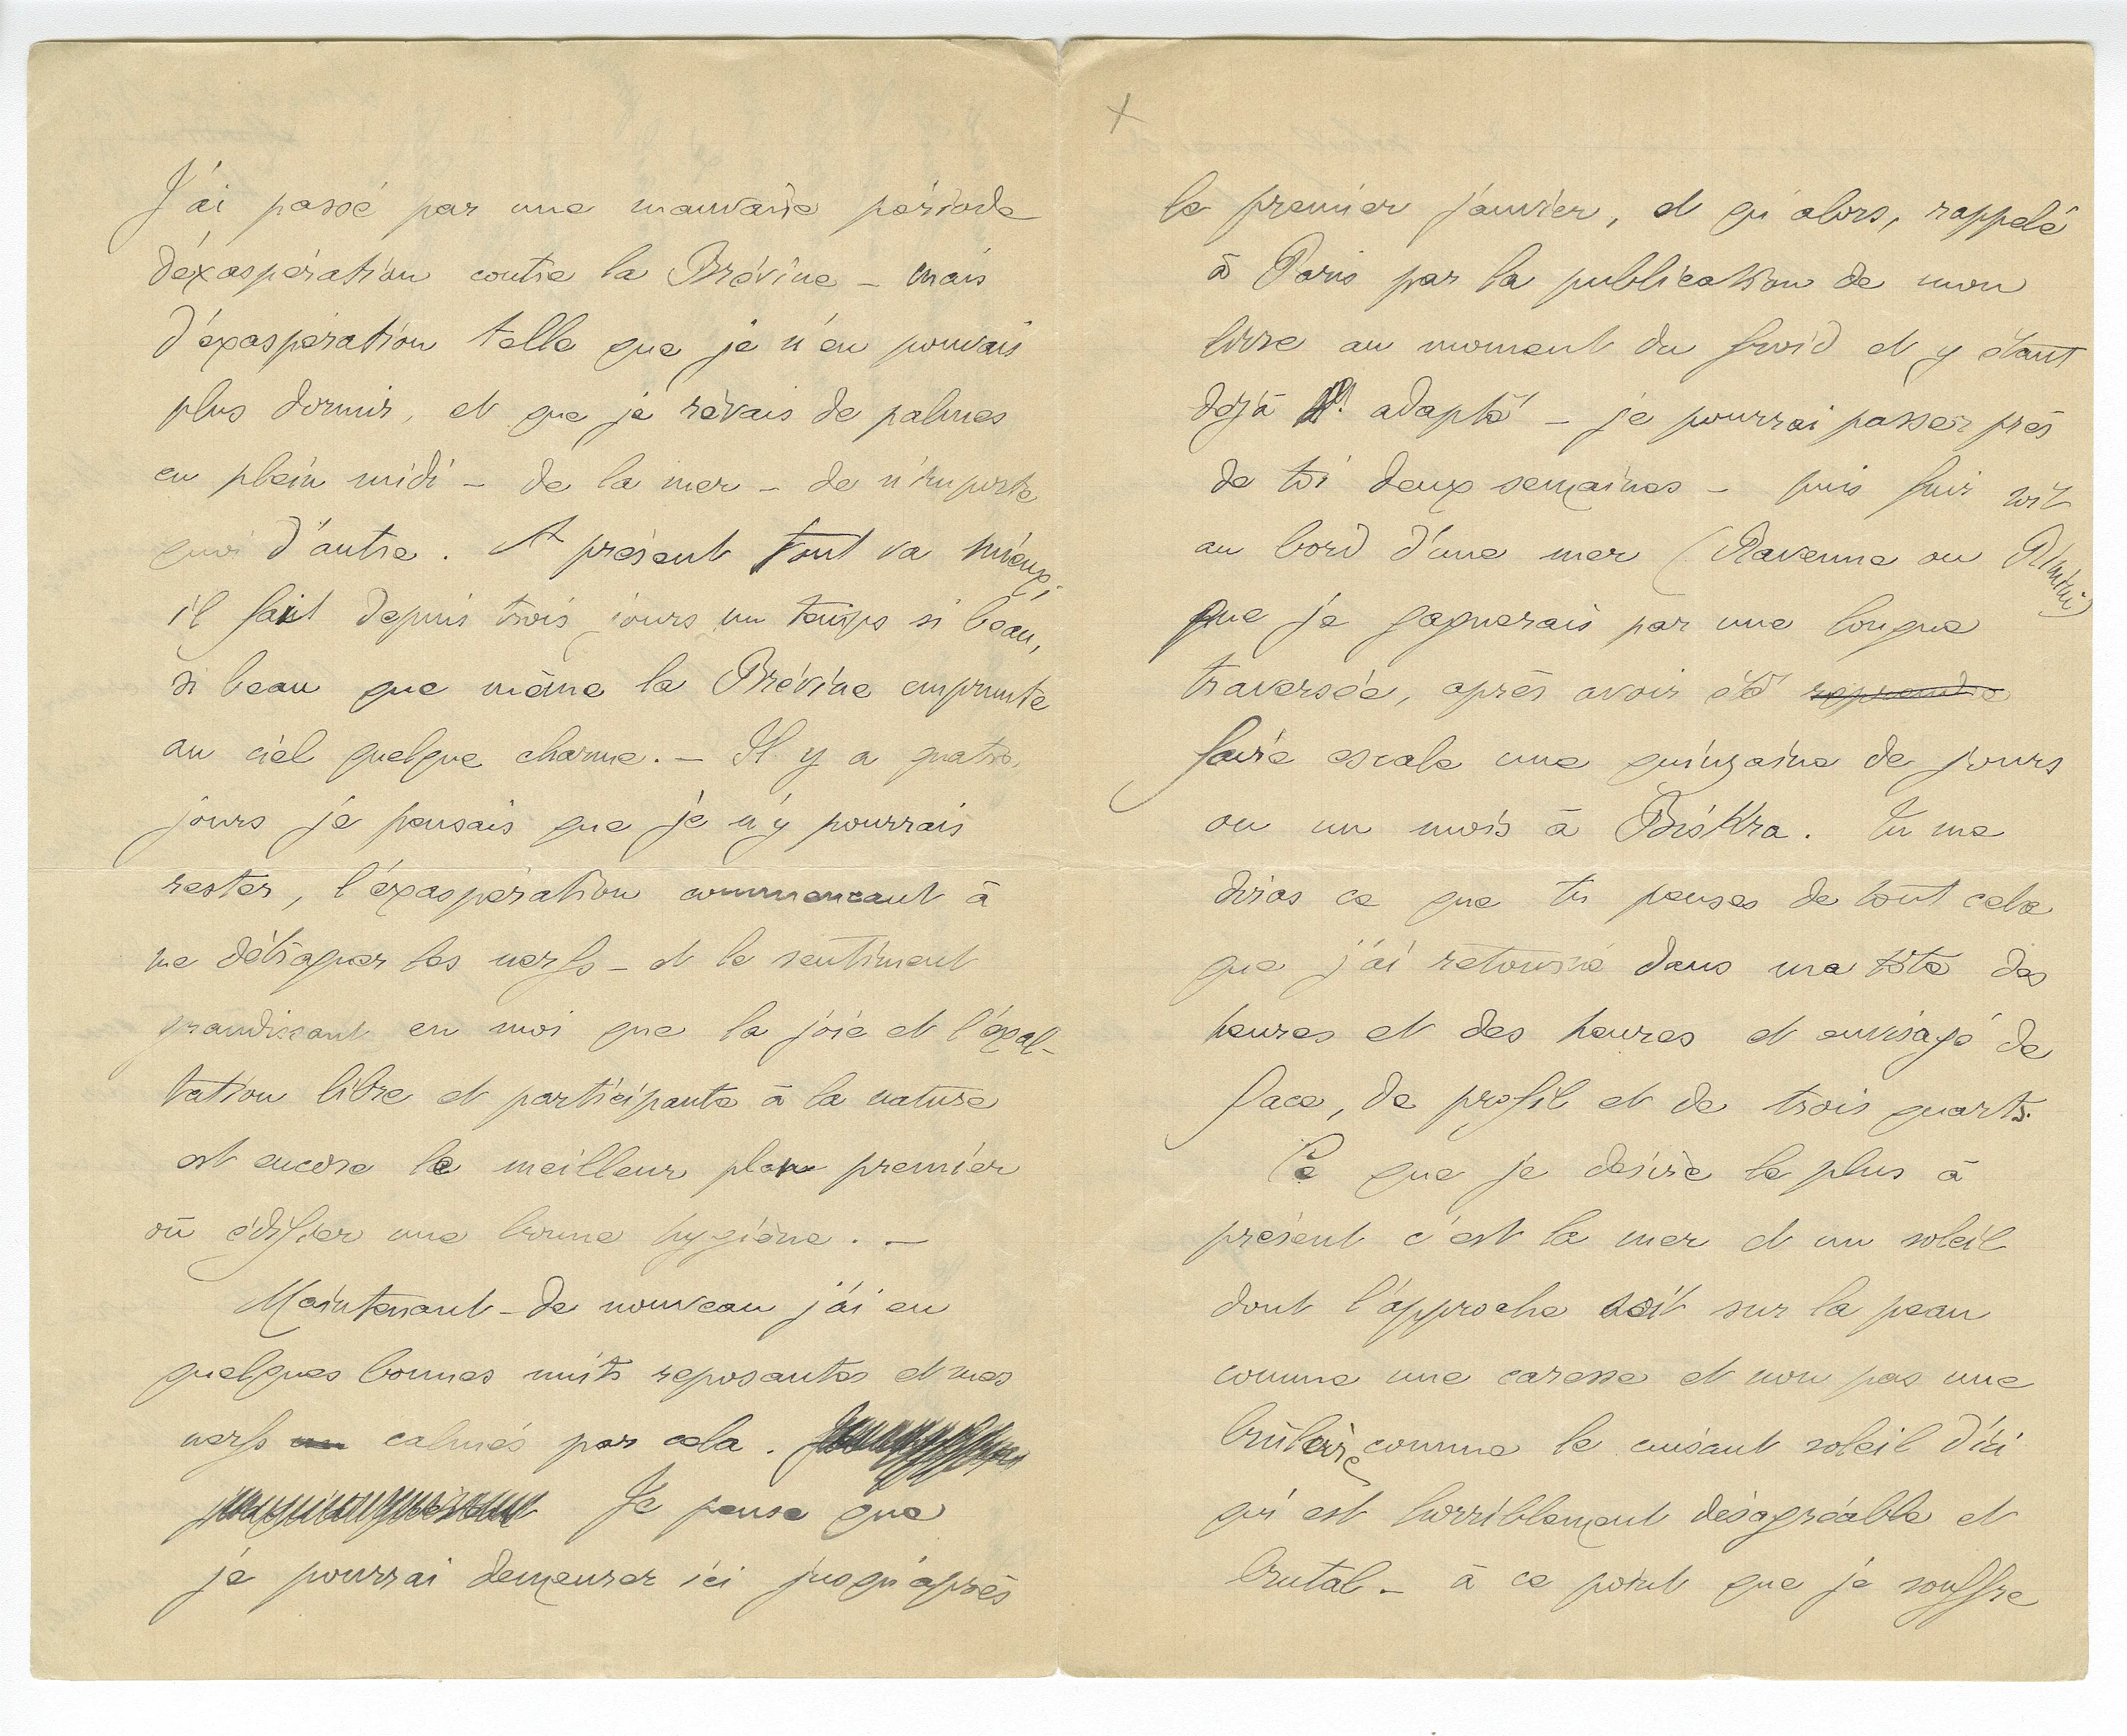 J'ai passé par une mauvaise période
d'éxaspération contre la Brévine – mais
d'éxaspération telle que je n'en pouvais
plus dormir, et que je rêvais de palmes
en plein midi – de la mer – de n'importe
quoi d'autre. A présent tout va mieux ;
il fait depuis trois jours un temps si beau,
si beau que même la Brévine emprunte
au ciel quelque charme. – Il y a quatre
jours je pensais que je n'y pourrais
rester, l'éxaspération commencant à
me détraquer les nerfs – et le sentiment
grandissant en moi que la joie et l'éxal-
tation libre et participante à la nature
est encore le meilleur plan premier
où édifier une bonne hygiène. –
Maintenant – de nouveau j'ai eu
quelques bonnes nuits reposantes et mes
nerfs calmés par cela.
Je pense que
je pourrai demeurer ici jusqu'après
le premier janvier, et qu'alors, rappelé
à Paris par la publication de mon
livre au moment du froid et y étant
déjà adapté – je pourrai passer près
de toi deux semaines – puis fuir vit
au bord d'une mer (Ravenne ou Rimini)
que je gagnerais par une longue
traversée, après avoir été reprendre
faire escale une quinzaine de jours
ou un mois à Biskra. Tu me
diras ce que tu penses de tout cela
que j'ai retourné dans ma tête des
heures et des heures et envisagé de
face, de profil et de trois quarts.
Ce que je désire le plus à
présent c'est la mer et un soleil
dont l'approche soit sur la peau
comme une caresse et non pas une
brûlure comme le cuisant soleil d'ici
qui est horriblement désagréable et
brutal – à ce point que je souffre